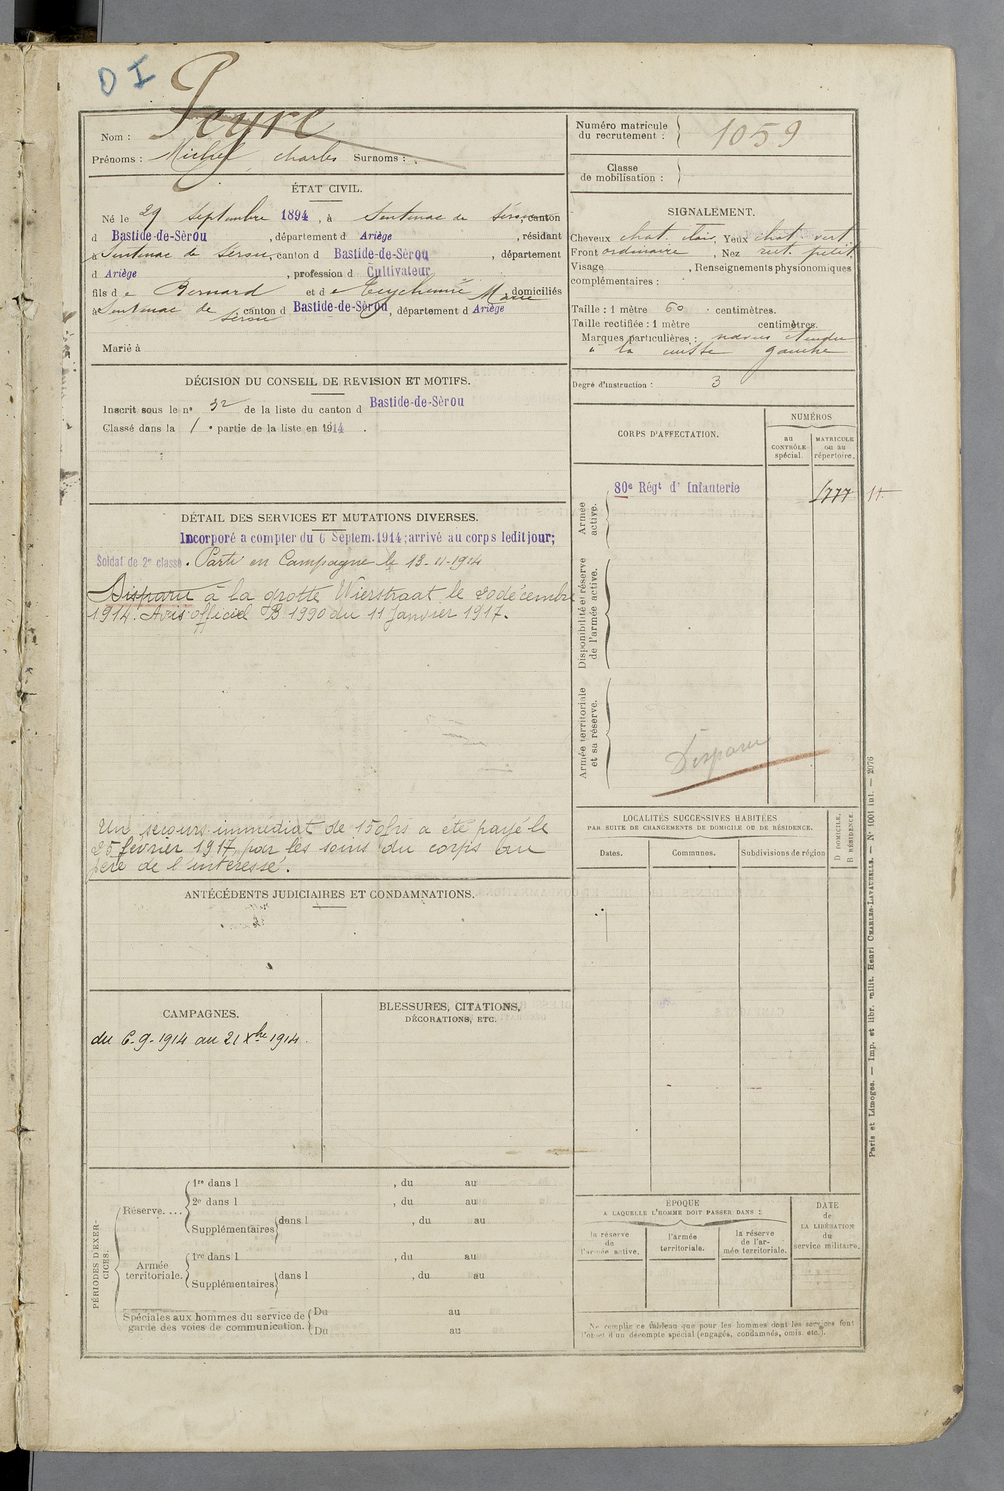 D I
Peyre
Nom :
Prénoms : Michel Charles Surnoms :
ÉTAT CIVIL.
Né le 29 Septembre 1894, à Sentenac de Sérou, canton
d Bastide-de-Sèrou, département d Ariège, résidant
à Sentenac de Sérou, canton d Bastide-de-Sèrou, département
d Ariège, profession d Cultivateur
fils d e Bernard et d e Eychenne Marie domiciliés
à Sentenac de Sérou canton d Bastide-de-Sèrou, département d Ariège
Marié à
DÉCISION DU CONSEIL DE REVISION ET MOTIFS.
Inscrit sous le n° 32 de la liste du canton d Bastide-de-Sèrou
Classé dans la 1e partie de la liste en 1914.
DÉTAIL DES SERVICES ET MUTATIONS DIVERSES.
Incorporé a compter du 6 Septem. 1914; arrivé au corps ledit jour;
Soldat de 2e classe. Parti en Campagne le 13-11-1914
Disparu à la grotte Wierstraat le 20 décembre
1914. Avis officiel B 1990 du 11 Janvier 1917.
Un secours immédiat de 150frs a été payé le
25 février 1917 par les soins du corps au
père de l'intéressé.
ANTÉCÉDENTS JUDICIAIRES ET CONDAMNATIONS.
CAMPAGNES.
du 6-9-1914 au 21 Xbre 1914.
BLESSURES, CITATIONS,
DÉCORATIONS, ETC.
PÉRIODES D'EXERCICES.
Réserve....
1re dans l , du au
2e dans l , du au
Supplémentaires dans l , du au
Armée
territoriale.
1re dans l , du au
Supplémentaires dans l , du au
Spéciales aux hommes du service de
garde des voies de communication.
Du au
Du au
Numéro matricule
du recrutement : 1059
Classe
de mobilisation :
SIGNALEMENT.
Cheveux chat. clair, Yeux chat. vert
Front ordinaire, Nez rect. petit
Visage , Renseignements physionomiques
complémentaires :
Taille : 1 mètre 60 centimètres.
Taille rectifiée : 1 mètre centimètres.
Marques particulières : naevus étendu
à la cuisse gauche
Degré d'instruction : 3
CORPS D'AFFECTATION.
NUMÉROS
au
CONTRÔLE
spécial.
MATRICULE
ou au
répertoire.
Armée
active.
80e Régt d' Infanterie
1777 11
Disponibilité et réserve
de l'armée active.
Armée territoriale
et sa réserve.
Disparu
LOCALITÉS SUCCESSIVES HABITÉES
PAR SUITE DE CHANGEMENTS DE DOMICILE OU DE RÉSIDENCE.
Dates.
Communes.
Subdivisions de région
D DOMICILE.
R RÉSIDENCE.
ÉPOQUE
A LAQUELLE L'HOMME DOIT PASSER DANS :
la réserve
de
l'armée active.
l'armée
territoriale.
la réserve
de l'ar-
mée territoriale.
DATE
de
LA LIBÉRATION
du
service militaire.
Ne remplir ce tableau que pour les hommes dont les services font
l'objet d'un décompte spécial (engagés, condamnés, omis, etc.).
Paris et Limoges. — Imp. et libr. milit. Henri CHARLES-LAVAUZELLE. — N° 1001 int. — 2076